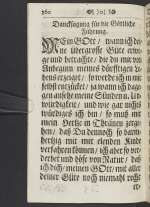 360 ❧ )o( ☙
Dancksagung für die Göttliche
Führung.
MEin GOtt / wann ich dei-
ne übergrosse Güte erwe-
ge und betrachte / die du mir von
Anbeginn meines dürfftigen Le-
bens erzeiget / so werde ich in mir
selbst entzückt; ja wann ich dage-
gen ansehe meine Sünden u. Un-
würdigkeit / und wie gar nichts
würdiges ich bin / so muß mir
mein Hertze in Thränen zerge-
hen / daß Du dennoch so barm-
hertzig mit mir elenden Kinde
verfahren können / ich aber so ver-
derbet und böse von Natur / daß
ich dich / meinen GOtt / mit aller
deiner Güte noch niemahls recht